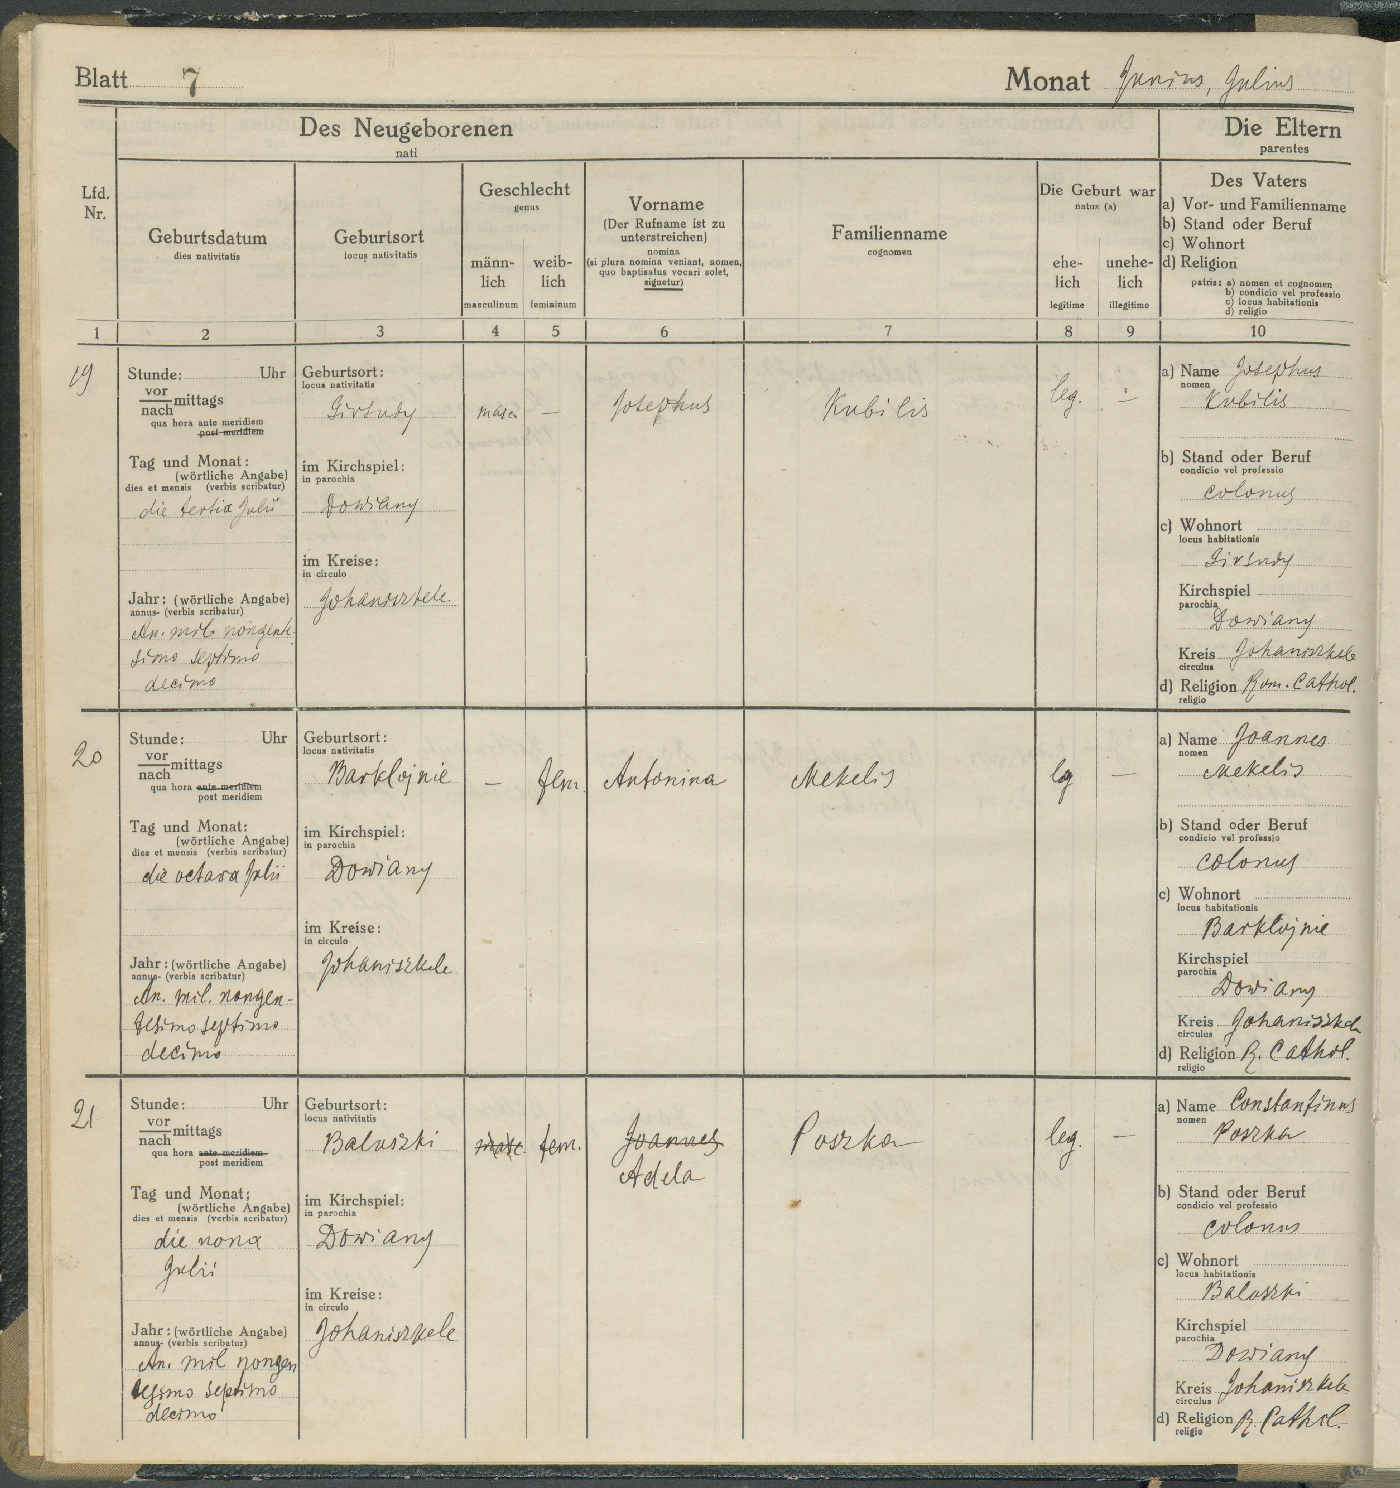 Blatt 7
Monat Junius, Julius
Des Neugeborenen
nati
Die Eltern
parentes
Lfd.
Nr.
Geburtsdatum
dies nativitatis
Geburtsort
locus nativitatis
Geschlecht
genus
männ-
lich
masculinum
weib-
lich
femininum
Vorname
(Der Rufname ist zu
unterstreichen)
nomina
(si plura nomina veniant, nomen,
quo baptisatus vocari solet,
signetur)
Familienname
cognomen
Die Geburt war
natus (a)
ehe-
lich
legitime
unehe-
lich
illegitime
Des Vaters
a) Vor- und Familienname
b) Stand oder Beruf
c) Wohnort
d) Religion
patris: a) nomen et cognomen
b) condicio vel professio
c) locus habitationis
d) religio
1 2 3 4 5 6 7 8 9 10
19
Stunde: Uhr
vor
nach mittags
qua hora ante meridiem
post meridiem
Tag und Monat:
(wörtliche Angabe)
dies et mensis (verbis scribatur)
die tertia Julii
Jahr: (wörtliche Angabe)
annus- (verbis scribatur)
An. mil. nongente-
simo septimo
decimo
Geburtsort:
locus nativitatis
Girsudy
im Kirchspiel:
in parochia
Dowiany
im Kreise:
in circulo
Johaniszkele
masc
—
Josephus
Kubilis
leg.
—
a) Name Josephus
nomen
Kubilis
b) Stand oder Beruf
condicio vel professio
colonus
c) Wohnort
locus habitationis
Girsudy
Kirchspiel
parochia
Dowiany
Kreis Johaniszkele
circulus
d) Religion Rom. Cathol.
religio
20
Stunde: Uhr
vor
nach mittags
qua hora ante meridiem
post meridiem
Tag und Monat:
(wörtliche Angabe)
dies et mensis (verbis scribatur)
die octava Julii
Jahr: (wörtliche Angabe)
annus- (verbis scribatur)
An. mil. nongen-
tesimo septimo
decimo
Geburtsort:
locus nativitatis
Barklojnie
im Kirchspiel:
in parochia
Dowiany
im Kreise:
in circulo
Johaniszkele
—
fem.
Antonina
Mekelis
leg
—
a) Name Joannes
nomen
Mekelis
b) Stand oder Beruf
condicio vel professio
colonus
c) Wohnort
locus habitationis
Barklojnie
Kirchspiel
parochia
Dowiany
Kreis Johaniszkele
circulus
d) Religion R. Cathol.
religio
21
Stunde: Uhr
vor
nach mittags
qua hora ante meridiem
post meridiem
Tag und Monat:
(wörtliche Angabe)
dies et mensis (verbis scribatur)
die nona
Julii
Jahr: (wörtliche Angabe)
annus- (verbis scribatur)
An. mil nongen
tesimo septimo
decimo
Geburtsort:
locus nativitatis
Baluszki
im Kirchspiel:
in parochia
Dowiany
im Kreise:
in circulo
Johaniszkele
masc.
fem.
Joannes
Adela
Poszka
leg.
—
a) Name Constantinus
nomen
Poszka
b) Stand oder Beruf
condicio vel professio
colonus
c) Wohnort
locus habitationis
Baluszki
Kirchspiel
parochia
Dowiany
Kreis Johaniszkele
circulus
d) Religion R. Cathol.
religio